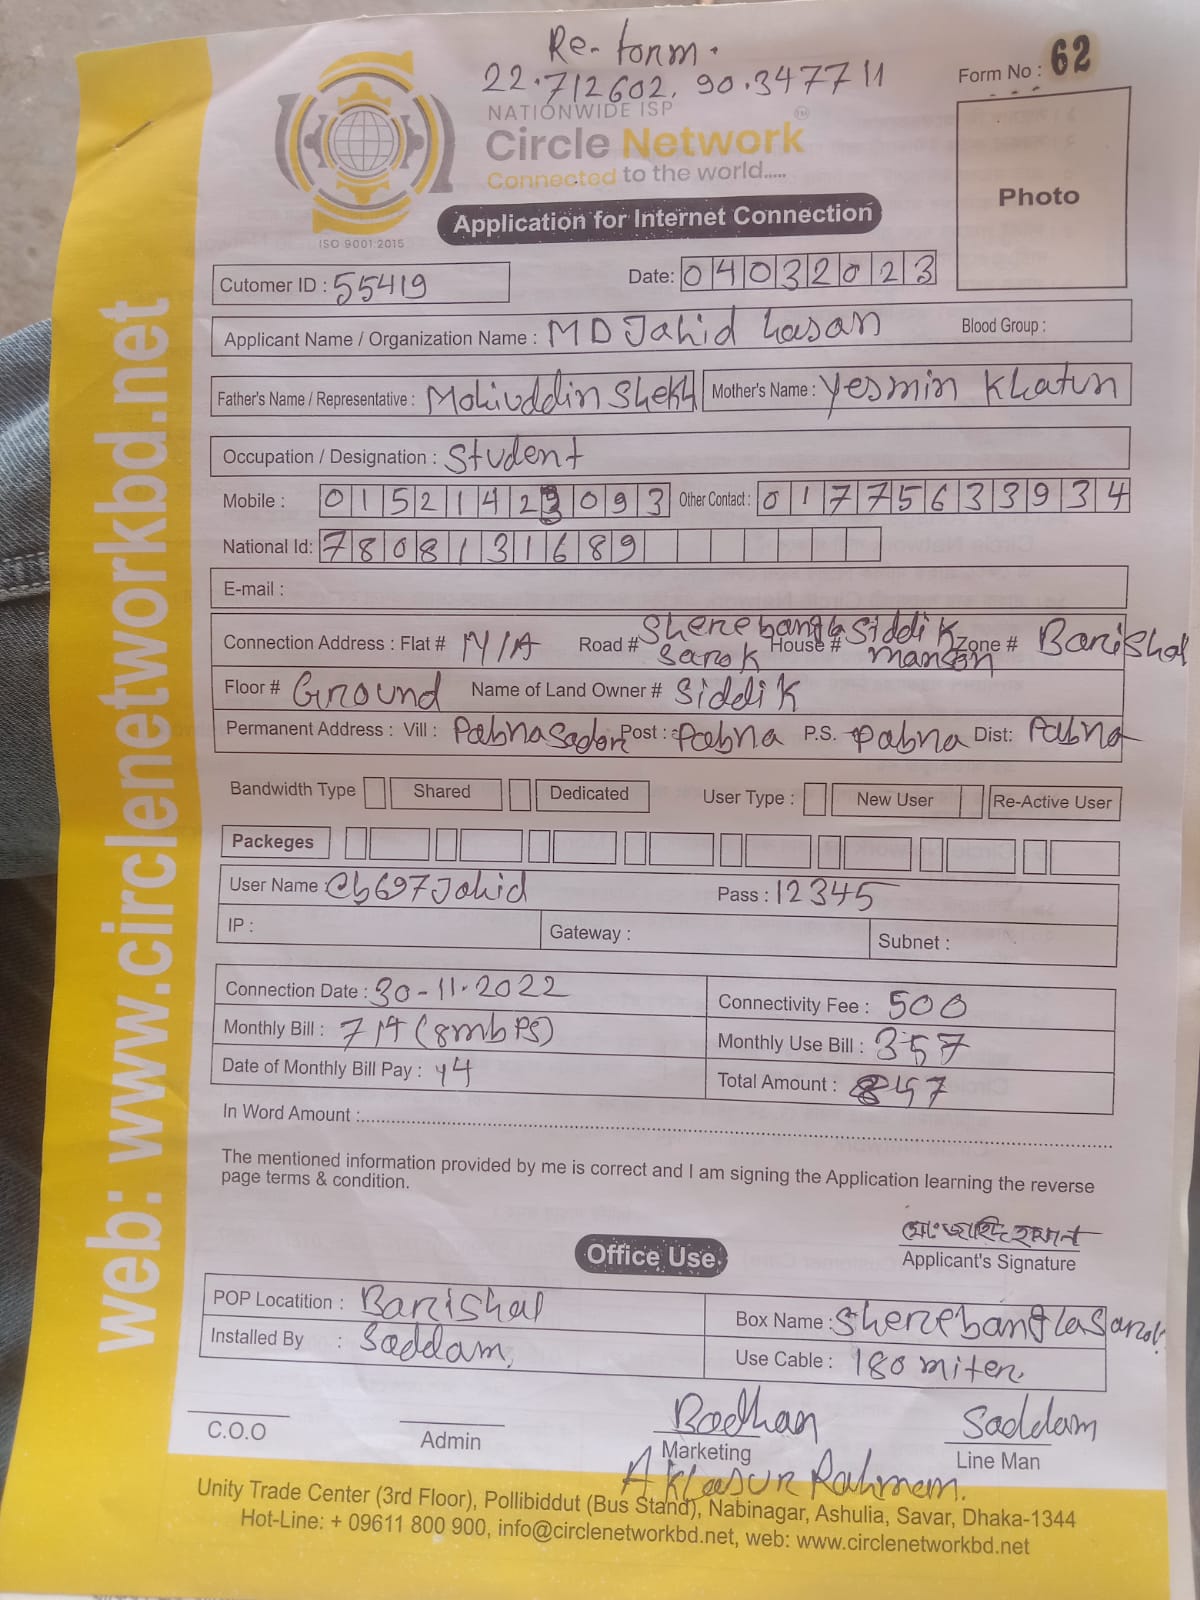 Re-form.
22.712602, 90.347711
Form No : 62
NATIONWIDE ISP
Circle Network
Connected to the world.....
ISO 9001:2015
Photo
Application for Internet Connection
Cutomer ID : 55419
Date: 04032023
Applicant Name / Organization Name : MD Jahid hasan Blood Group :
Father's Name / Representative : Mohiuddin Shekh Mother's Name : Yesmin Khatun
Occupation / Designation : Student
Mobile : 01521423093 Other Contact : 01775633934
National Id: 7808131689
E-mail :
Connection Address : Flat # N/A Road # Sherebangla Sarok House # Siddik manson Zone # Barishal
Floor # Ground Name of Land Owner # Siddik
Permanent Address : Vill : Pabna Sador Post : Pabna P.S. Pabna Dist: Pabna
Bandwidth Type Shared Dedicated User Type : New User Re-Active User
Packeges
User Name : Cb697Jahid Pass : 12345
IP : Gateway : Subnet :
Connection Date : 30-11-2022 Connectivity Fee : 500
Monthly Bill : 714 (8mbPS) Monthly Use Bill : 357
Date of Monthly Bill Pay : Total Amount :
In Word Amount :
The mentioned information provided by me is correct and I am signing the Application learning the reverse
page terms & condition.
মোঃ জাহিদ হাসান
Applicant's Signature
Office Use.
POP Locatition : Barishal Box Name : Sherebangla Sarok
Installed By : Saddam. Use Cable : 180 miter.
C.O.O Admin Bodhan Marketing Saddam Line Man
Rahman.
Unity Trade Center (3rd Floor), Pollibiddut (Bus Stand), Nabinagar, Ashulia, Savar, Dhaka-1344
Hot-Line: + 09611 800 900, info@circlenetworkbd.net, web: www.circlenetworkbd.net
web: www.circlenetworkbd.net